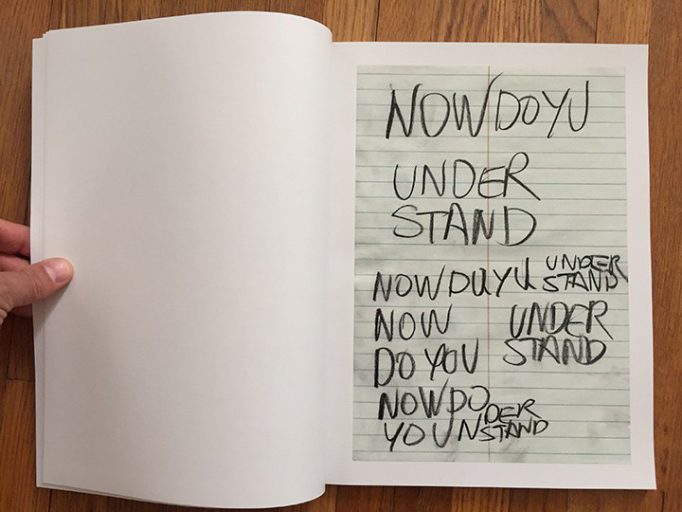 NOWDOYU
UNDER
STAND
NOWDUYU UNDER
STAND
NOW UNDER
DO YOU STAND
NOWDO
YOUNDER
STAND